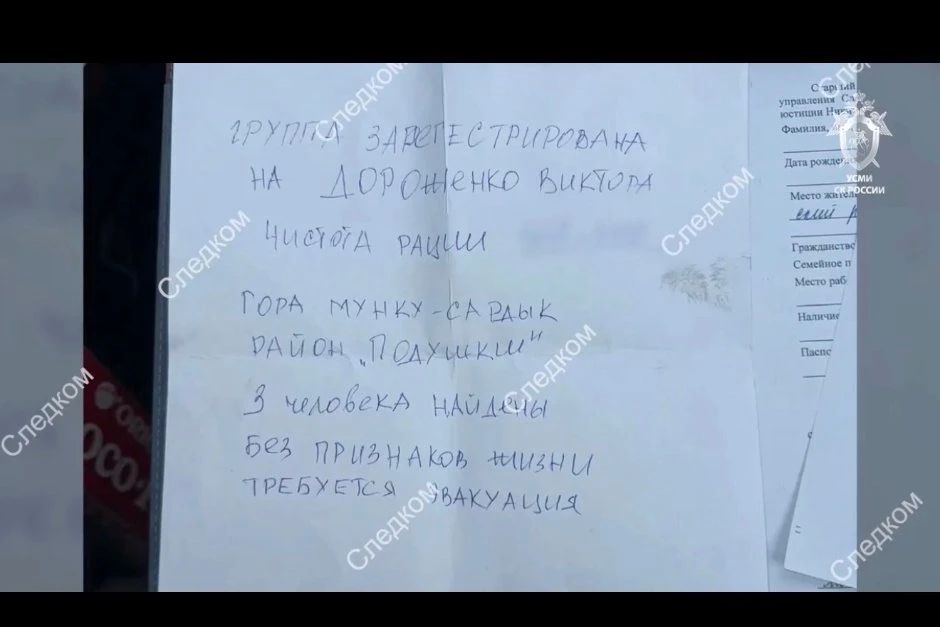 ГРУППА ЗАРЕГЕСТРИРОВАНА
НА ДОРОЖЕНКО ВИКТОРА
ЧИСТОТА РАЦИИ
ГОРА МУНКУ-САРДЫК
РАЙОН „ПОДУШКИ"
3 ЧЕЛОВЕКА НАЙДЕНЫ
БЕЗ ПРИЗНАКОВ ЖИЗНИ
ТРЕБУЕТСЯ ЭВАКУАЦИЯ
Старший
управления
юстиции
Фамилия,
Дата рождения
Место
Гражданство
Семейное п
Место раб
Наличие
Паспо
УСМИ
СК РОССИИ
Следком
Следком
Следком
Следком
Следком
Следком
Следком
Следком